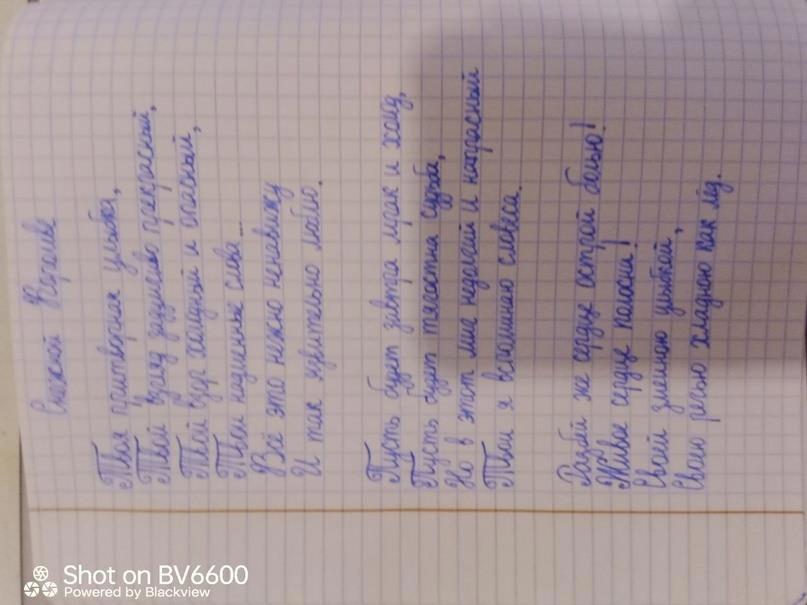 Снежной Королеве
Твоя притворная улыбка,
Твой взгляд задумливо прекрасный,
Твой взор холодный и опасный,
Твои надменные слова...
Всё это нежно ненавижу
И так язвительно люблю.
Пусть будет завтра мрак и холод,
Пусть будет тягостна судьба,
Но в этот миг недолгий и напрасный
Твои я вспоминаю словеса.
Разбей же сердце острой болью!
Живое сердце полосни!
Своей змеиною улыбкой,
Своею речью хладною как лёд.
Shot on BV6600
Powered by Blackview